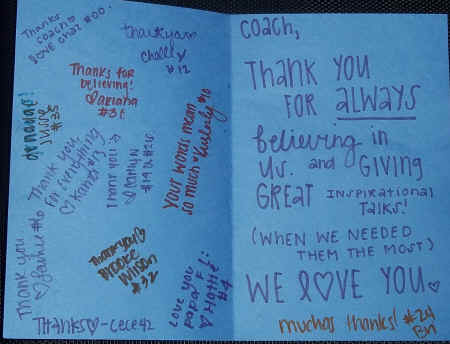 Thanks
coach♡
love chaz #00.
thank you♡
chally
#12
Thanks for
believing!
♡ariana
#36
#35
Thank you
for everything
♡
Thank you :)
♡
Your words mean
so much ♡Kimberly #10
Thank you
♡
#16
Thank you♡
Brooke
Wilson
#32
Love you
papa F
Thanks♡-cece42
Coach,
Thank you
for always
believing in
us. and Giving
GREAT INSPIRATIONAL
Talks!
(WHEN WE NEEDED
THEM THE MOST)
WE L♡VE YOU♡
muchas thanks! #24